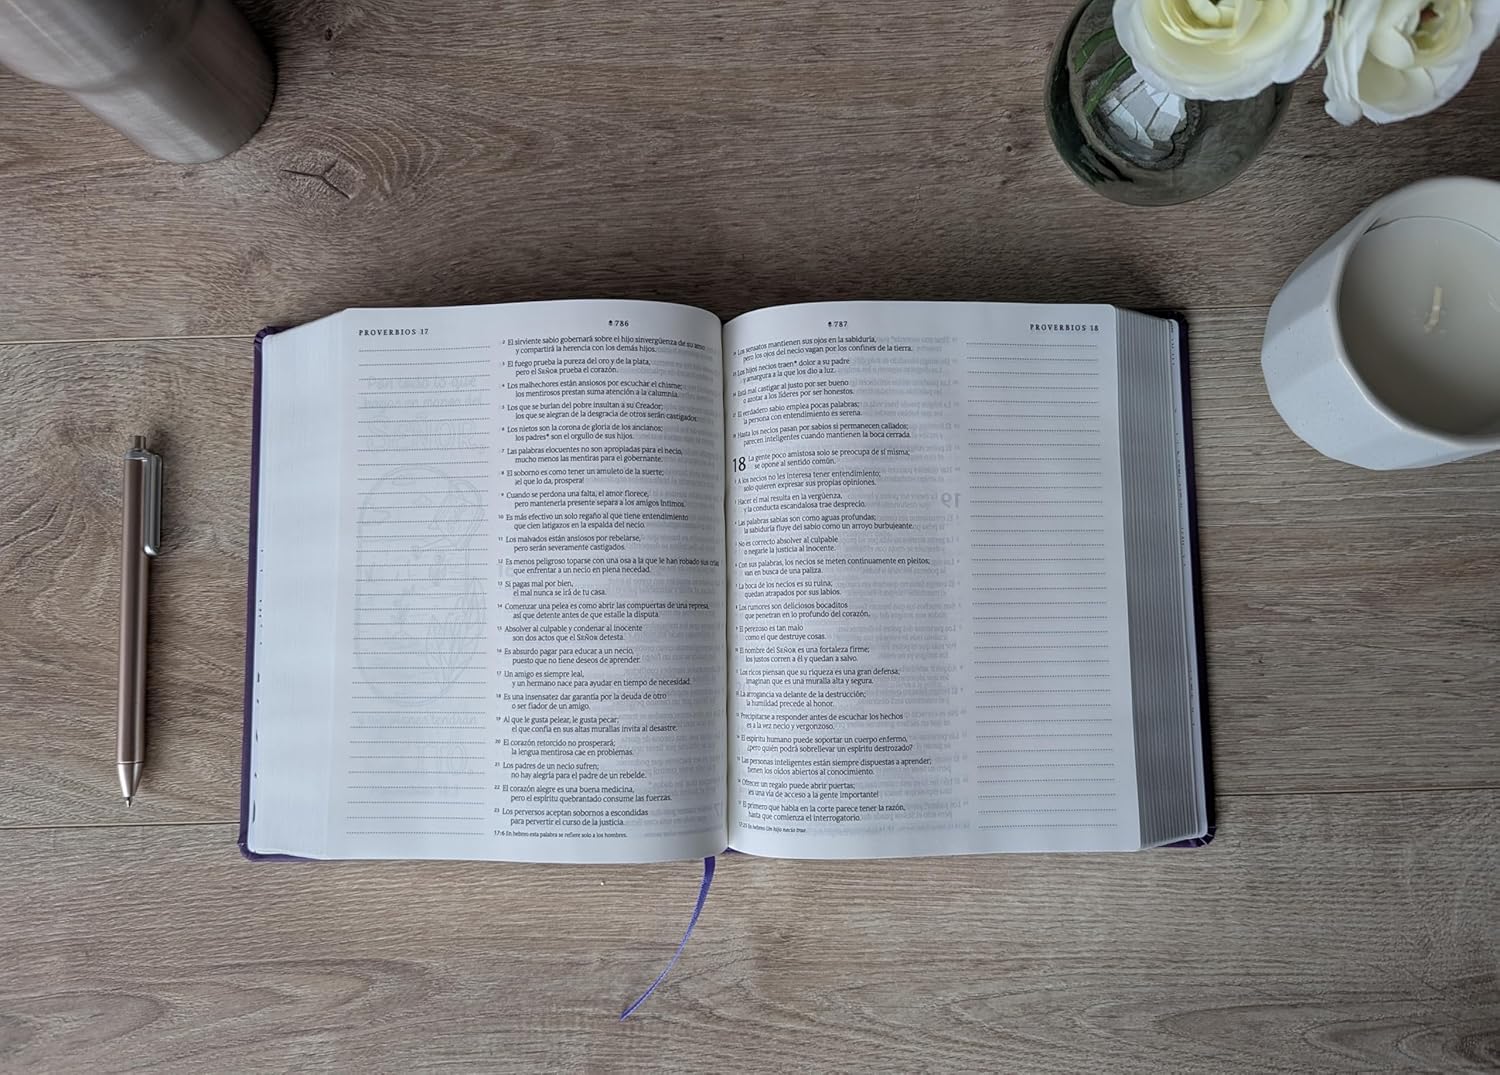 PROVERBIOS 17
786
2 El sirviente sabio gobernará sobre el hijo sinvergüenza de su amo
y compartirá la herencia con los demás hijos.
3 El fuego prueba la pureza del oro y de la plata,
pero el SEÑOR prueba el corazón.
4 Los malhechores están ansiosos por escuchar el chisme;
los mentirosos prestan suma atención a la calumnia.
5 Los que se burlan del pobre insultan a su Creador;
los que se alegran de la desgracia de otros serán castigados.
6 Los nietos son la corona de gloria de los ancianos;
los padres* son el orgullo de sus hijos.
7 Las palabras elocuentes no son apropiadas para el necio,
mucho menos las mentiras para el gobernante.
8 El soborno es como tener un amuleto de la suerte;
¡el que lo da, prospera!
9 Cuando se perdona una falta, el amor florece,
pero mantenerla presente separa a los amigos íntimos.
10 Es más efectivo un solo regaño al que tiene entendimiento
que cien latigazos en la espalda del necio.
11 Los malvados están ansiosos por rebelarse,
pero serán severamente castigados.
12 Es menos peligroso toparse con una osa a la que le han robado sus crías
que enfrentar a un necio en plena necedad.
13 Si pagas mal por bien,
el mal nunca se irá de tu casa.
14 Comenzar una pelea es como abrir las compuertas de una represa,
así que detente antes de que estalle la disputa.
15 Absolver al culpable y condenar al inocente
son dos actos que el SEÑOR detesta.
16 Es absurdo pagar para educar a un necio,
puesto que no tiene deseos de aprender.
17 Un amigo es siempre leal,
y un hermano nace para ayudar en tiempo de necesidad.
18 Es una insensatez dar garantía por la deuda de otro
o ser fiador de un amigo.
19 Al que le gusta pelear, le gusta pecar;
el que confía en sus altas murallas invita al desastre.
20 El corazón retorcido no prosperará;
la lengua mentirosa cae en problemas.
21 Los padres de un necio sufren;
no hay alegría para el padre de un rebelde.
22 El corazón alegre es una buena medicina,
pero el espíritu quebrantado consume las fuerzas.
23 Los perversos aceptan sobornos a escondidas
para pervertir el curso de la justicia.
17:6 En hebreo esta palabra se refiere solo a los hombres.
787
PROVERBIOS 18
Los sensatos mantienen sus ojos en la sabiduría,
pero los ojos del necio vagan por los confines de la tierra.
Los hijos necios traen* dolor a su padre
y amargura a la que los dio a luz.
Está mal castigar al justo por ser bueno
o azotar a los líderes por ser honestos.
El verdadero sabio emplea pocas palabras;
la persona con entendimiento es serena.
Hasta los necios pasan por sabios si permanecen callados;
parecen inteligentes cuando mantienen la boca cerrada.
18 La gente poco amistosa solo se preocupa de sí misma;
se opone al sentido común.
A los necios no les interesa tener entendimiento;
solo quieren expresar sus propias opiniones.
Hacer el mal resulta en la vergüenza,
y la conducta escandalosa trae desprecio.
Las palabras sabias son como aguas profundas;
la sabiduría fluye del sabio como un arroyo burbujeante.
No es correcto absolver al culpable
o negarle la justicia al inocente.
Con sus palabras, los necios se meten continuamente en pleitos;
van en busca de una paliza.
La boca de los necios es su ruina;
quedan atrapados por sus labios.
Los rumores son deliciosos bocaditos
que penetran en lo profundo del corazón.
El perezoso es tan malo
como el que destruye cosas.
El nombre del SEÑOR es una fortaleza firme;
los justos corren a él y quedan a salvo.
Los ricos piensan que su riqueza es una gran defensa;
imaginan que es una muralla alta y segura.
La arrogancia va delante de la destrucción;
la humildad precede al honor.
Precipitarse a responder antes de escuchar los hechos
es a la vez necio y vergonzoso.
El espíritu humano puede soportar un cuerpo enfermo,
¿pero quién podrá sobrellevar un espíritu destrozado?
Las personas inteligentes están siempre dispuestas a aprender;
tienen los oídos abiertos al conocimiento.
Ofrecer un regalo puede abrir puertas;
¡es una vía de acceso a la gente importante!
El primero que habla en la corte parece tener la razón,
hasta que comienza el interrogatorio.
17:25 En hebreo Un hijo necio trae.